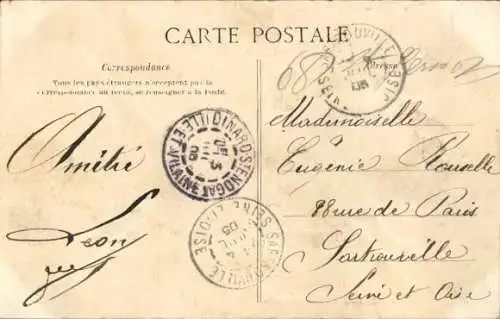 CARTE POSTALE
Correspondance
Tous les pays étrangers n'acceptent pas la
correspondance au verso, se renseigner à la Poste.
Adresse
Amitié
Léon
Mademoiselle
Eugénie
88 rue de Paris
Sartrouville
Seine et Oise
DINARD-ST ENOGAT
ILLE-ET-VILAINE
SARTROUVILLE
SEINE-ET-OISE